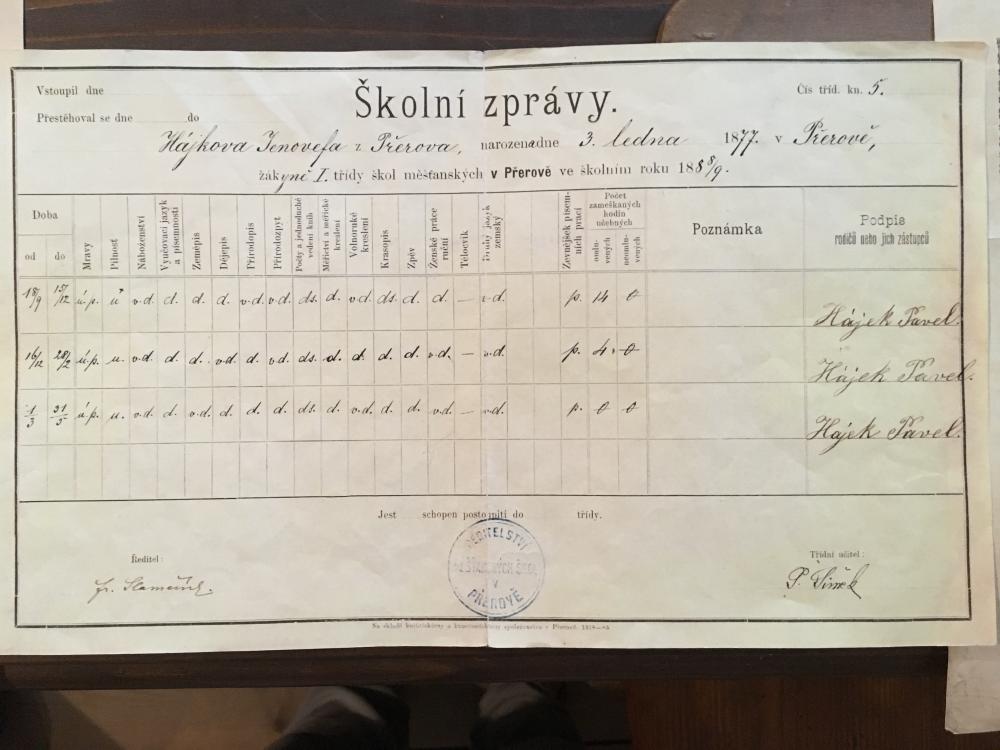 Vstoupil dne
Školní zprávy.
Čís tříd. kn. 5.
Přestěhoval se dne do
Hájkova Jenovefa z Přerova, narozena dne 3. ledna 1877. v Přerově,
žákyně I. třídy škol měšťanských v Přerově ve školním roku 1888/9.
Doba od do Mravy Pilnost Náboženství Vyučovací jazyk a písemnosti Zeměpis Dějepis Přírodopis Přírodozpyt Počty a jednoduché vedení knih Měřictví a měřické kreslení Volnoruké kreslení Krasopis Zpěv Ženské práce ruční Tělocvik Druhý jazyk zemský Zevnějšek písemních prací Počet zameškaných hodin učebných omluvených neomluvených Poznámka Podpis rodičů nebo jich zástupců
18/9 15/12 ú.p. u v.d. d. d. d. v.d. v.d. ds. d. v.d. ds. d. d. — v.d. p. 14 0 Hájek Pavel.
16/12 28/2 ú.p. u. v.d. d. d. v.d. d. v.d. ds. d. d. d. d. v.d. — v.d. p. 4. 0 Hájek Pavel.
1/3 31/5 ú.p. u. v.d. d. v.d. d. d. d. ds. d. v.d. d. d. v.d. — v.d. p. 0 0 Hájek Pavel.
Jest schopen postoupiti do třídy.
Ředitel:
Třídní učitel:
ŘEDITELSTVÍ
MĚŠŤANSKÝCH ŠKOL
V
PŘEROVĚ
P. Šimek
Na skladě v Přerově.